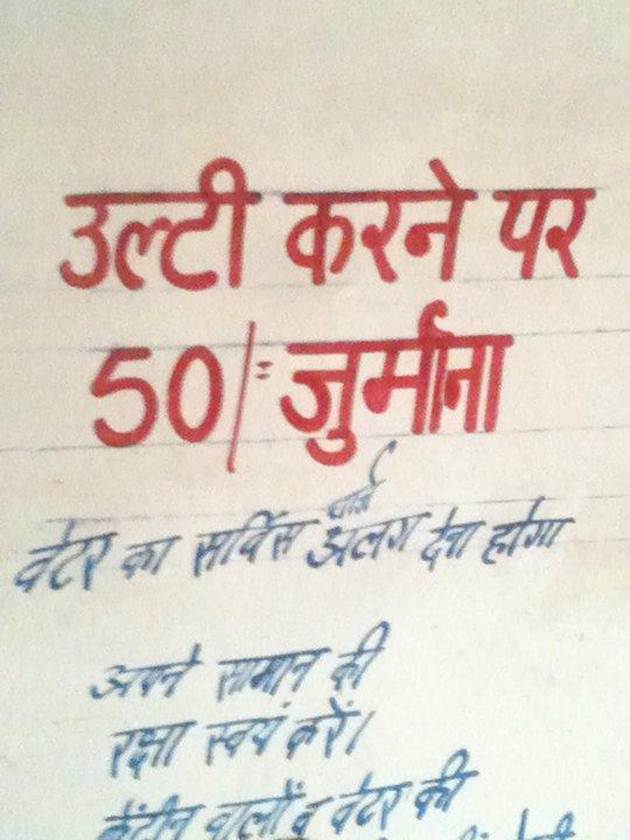 उल्टी करने पर
50/= जुर्माना
चार्ज
वेटर का सर्विस अलग देना होगा
अपने सामान की
रक्षा स्वयं करें।
केंटीन वालों व वेटर की